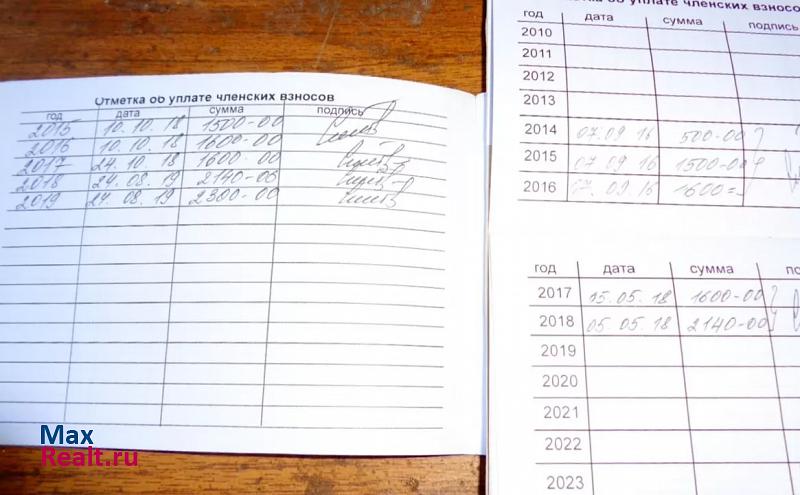 Отметка об уплате членских взносов
год дата сумма подпись
2015 10.10.18 1500-00
2016 10.10.18 1600-00
2017 24.10.18 1600-00
2018 24.08.19 2140-00
2019 24.08.19 2300-00
Max
Realt.ru
об уплате членских взносо
год дата сумма подпись
2010
2011
2012
2013
2014 07.09 16 500-00
2015 07.09 16 1500-00
2016 07.09 16 1600=
год дата сумма
2017 15.05.18 1600-00
2018 05.05.18 2140-00
2019
2020
2021
2022
2023